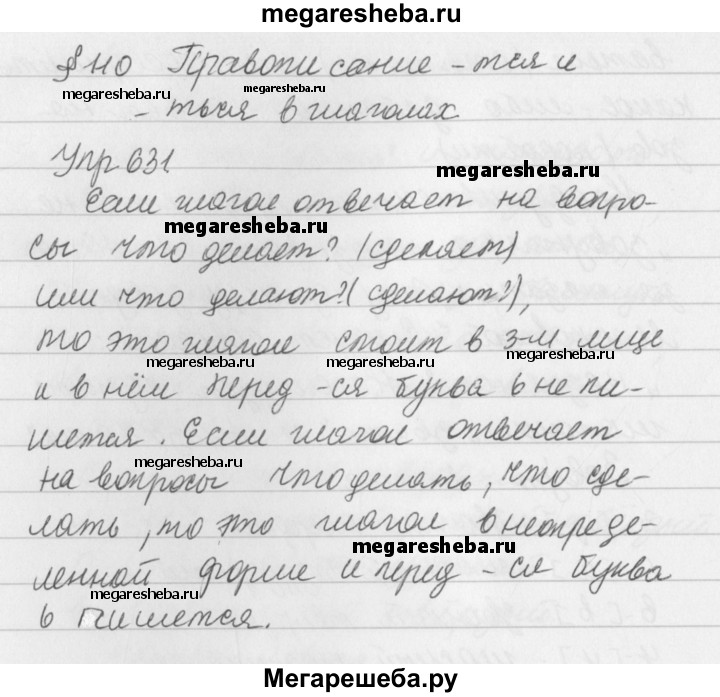 megaresheba.ru
§ 110 Правописание -тся и
megaresheba.ru megaresheba.ru
-ться в глаголах
Упр 631
megaresheba.ru
Если глагол отвечает на вопро-
megaresheba.ru
сы что делает? (сделает)
или что делают? (сделают?),
то это глагол стоит в 3-м лице
megaresheba.ru megaresheba.ru megaresheba.ru
и в нём перед -ся буква ь не пи-
шется. Если глагол отвечает
megaresheba.ru
на вопросы что делать, что сде-
лать, то это глагол в неопреде-
megaresheba.ru
ленной форме и перед -ся буква
megaresheba.ru
ь пишется.
Мегарешеба.ру